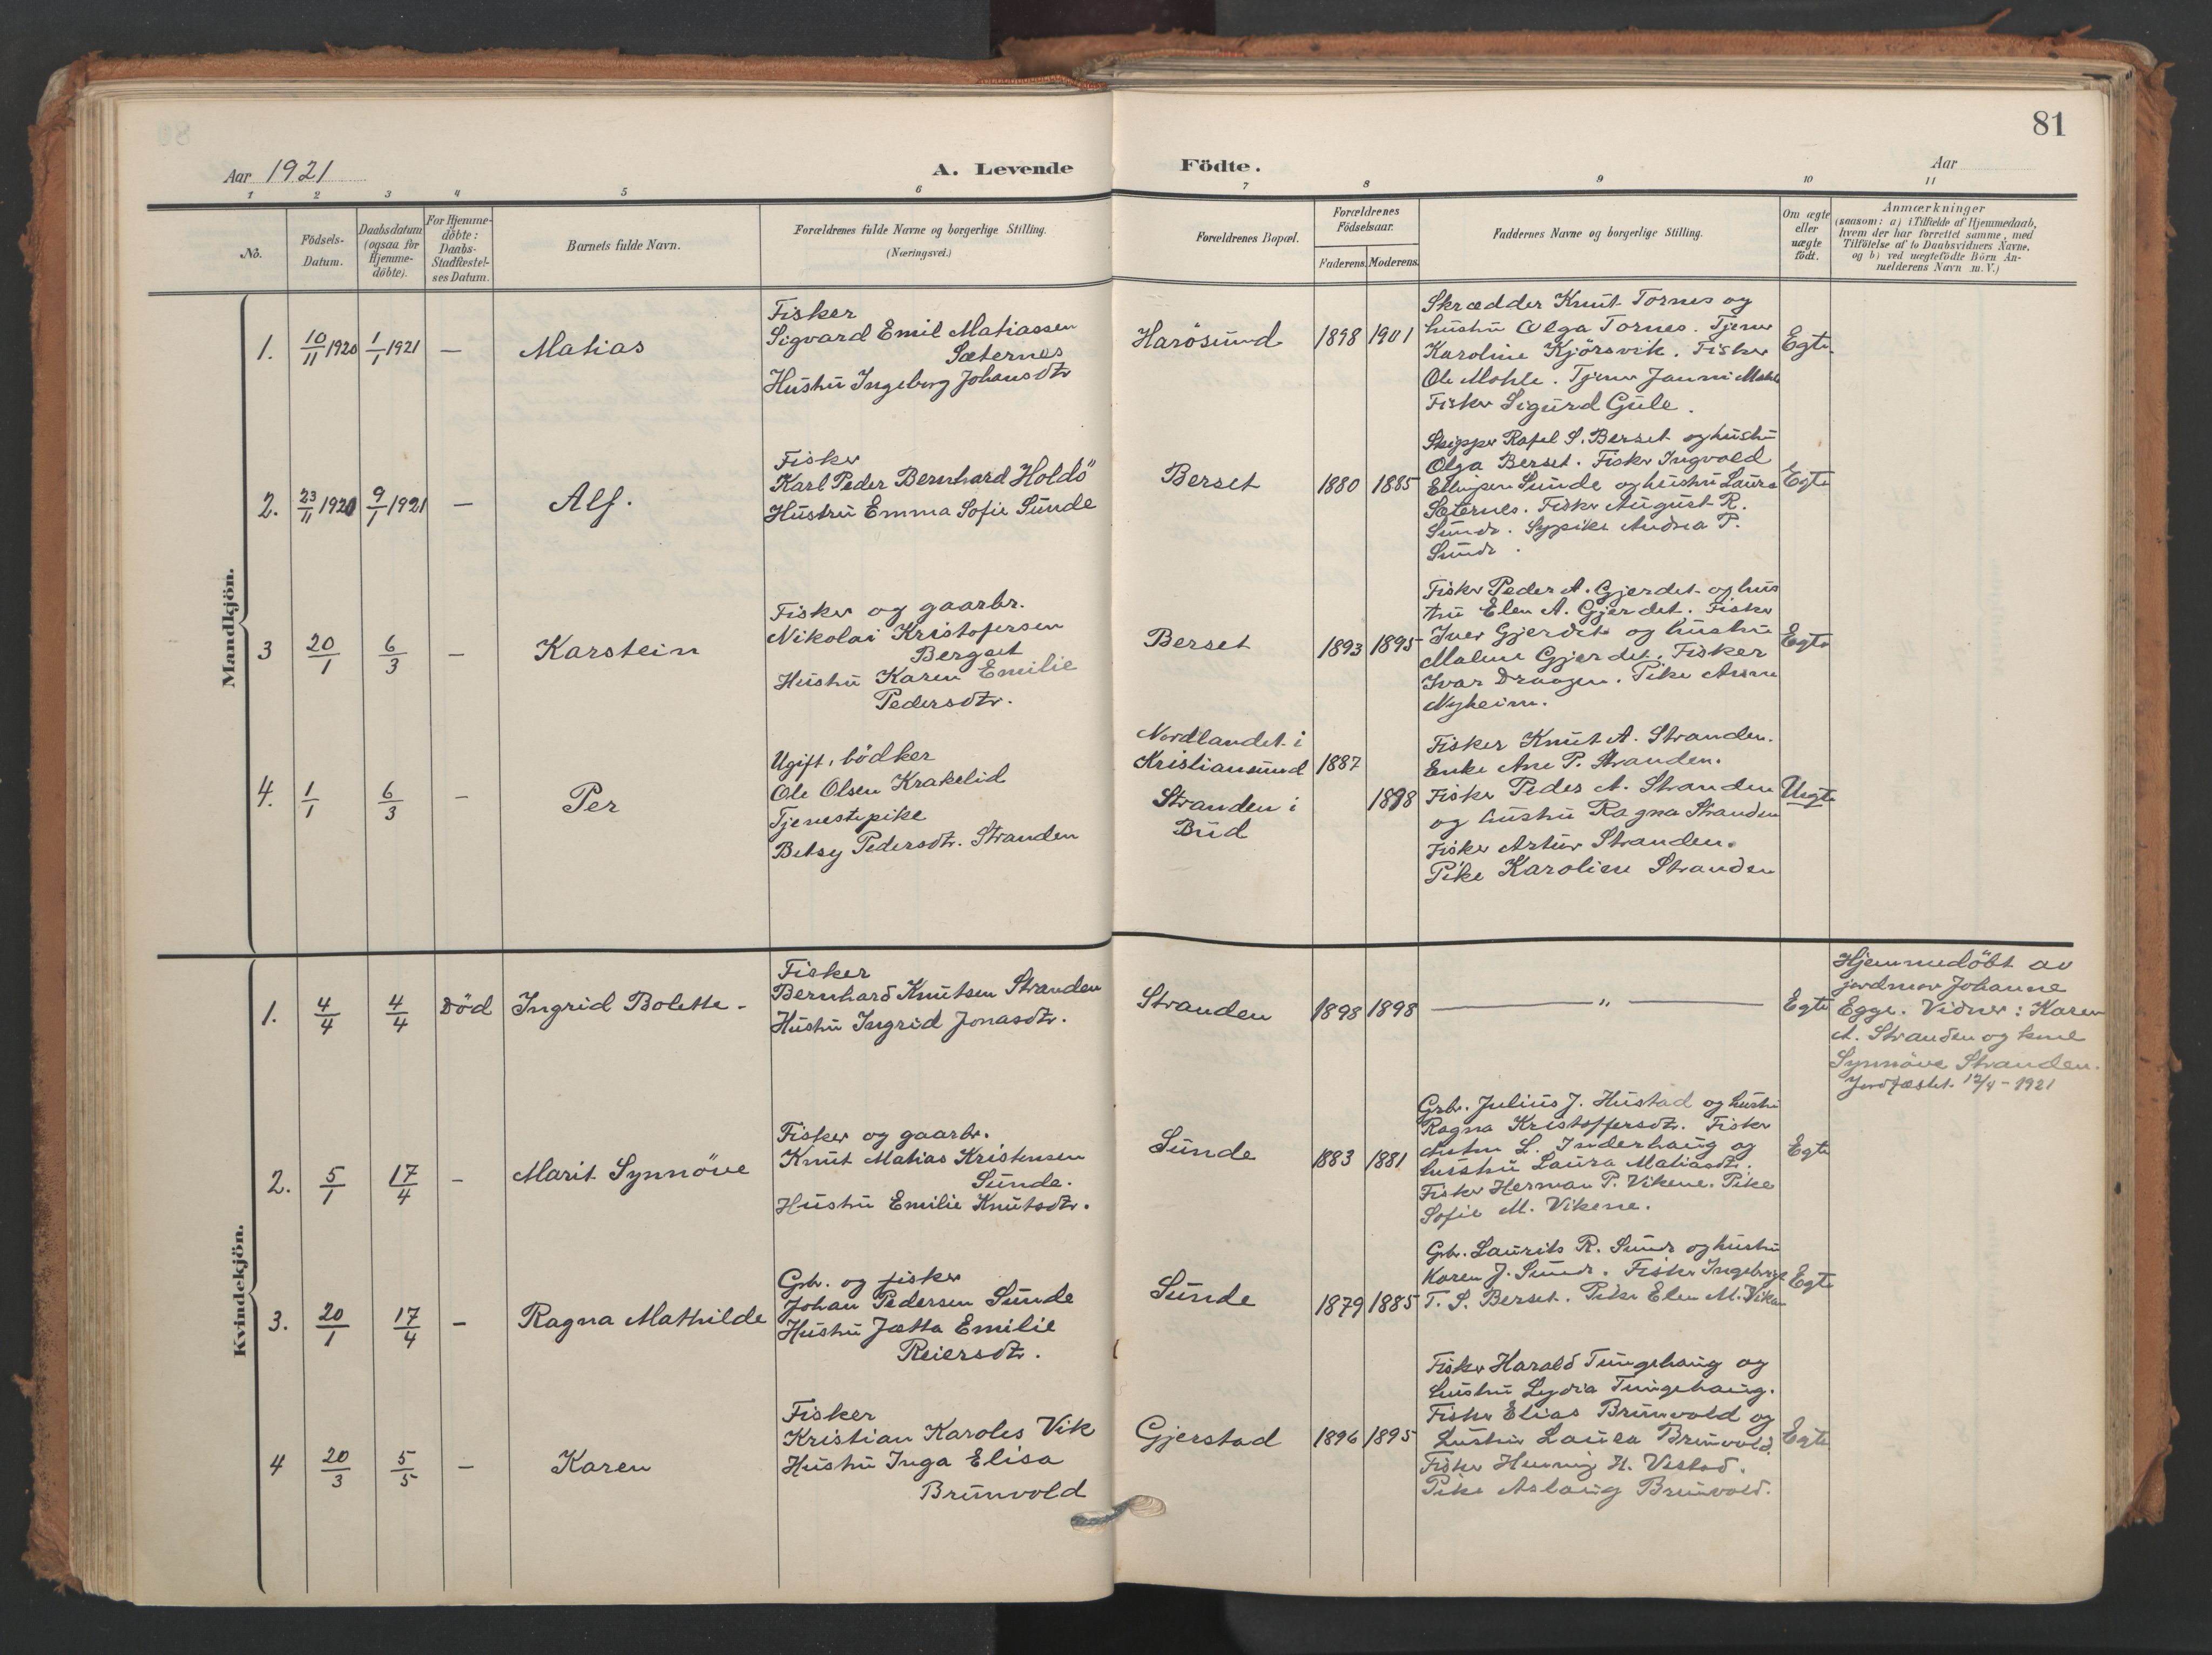 81
Aar 1921
A. Levende Födte.
Aar
1 2 3 4 5 6 7 8 9 10 11
No.
Födsels-
Datum.
Daabsdatum
(ogsaa for
Hjemme-
döbte).
For Hjemme-
döbte:
Daabs-
Stadfæstel-
ses Datum.
Barnets fulde Navn.
Forældrenes fulde Navne og borgerlige Stilling.
(Næringsvei.)
Forældrenes Bopæl.
Forældrenes
Födselsaar.
Faderens. Moderens.
Faddernes Navne og borgerlige Stilling.
Om ægte
eller
uægte
födt.
Anmærkninger
(saasom: a) i Tilfælde af Hjemmedaab,
hvem der har forrettet samme, med
Tilföielse af to Daabsvidners Navne.
og b) ved uægtefödte Börn An-
melderens Navn m. V.)
Mandkjön.
1. 10/11 1920 1/1 1921 — Matias
Fisker
Sigvard Emil Matiassen
Sæternes
Hustru Ingeborg Johansdtr
Harösund 1898 1901
Skrædder Knut Tornes og
hustru Olga Tornes. Tjener
Karoline Kjörsvik. Fisker
Ole Mohle. Tjener Janni Mohle
Fisker Sigurd Gule.
Egte.
2. 23/11 1920 9/1 1921 — Alf.
Fisker
Karl Peder Bernhard Holdö
Hustru Emma Sofie Sunde
Berset 1880 1885
Skipper Rafel S. Berset og hustru
Olga Berset. Fisker Ingvald
Ellingsen Sunde og hustru Laura
Sæternes. Fisker August R.
Sunde. Sypike Andrea P.
Sunde.
Egte
3 20/1 6/3 — Karstein
Fisker og gaarbr.
Nikolai Kristofersen
Bergset
Hustru Karen Emilie
Pedersdtr.
Berset 1893 1895
Fisker Peder A. Gjerdet og hus
tru Elen A. Gjerdet. Fisker
Iver Gjerdet og hustru
Malene Gjerdet. Fisker
Ivar Draagen. Pike Anna
Nyheim.
Egte
4. 1/1 6/3 — Per
Ugift, bödker
Ole Olsen Krakelid
Tjenestepike
Betsy Pedersdtr. Stranden
Nordlandet i
Kristiansund 1887
Stranden i 1898
Bud
Fisker Knut A. Stranden.
Enke Ane P. Stranden.
Fisker Peder A. Stranden
og hustru Ragna Stranden
Fisker Artur Stranden.
Pike Karoline Stranden
Uegte
Kvindekjön.
1. 4/4 4/4 Död Ingrid Bolette -
Fisker
Bernhard Knutsen Stranden
Hustru Ingrid Jonasdtr.
Stranden 1898 1898 — „ — Egte
Hjemmedöbt av
jordmor Johanne
Egge. Vidner: Karen
A. Stranden og kone
Synnöve Stranden.
Jordfæstet 12/4 - 1921
2. 5/1 17/4 - Marit Synnöve
Fisker og gaarbr.
Knut Matias Kristensen
Sunde.
Hustru Emilie Knutsdtr.
Sunde 1883 1881
Grbr. Julius J. Hustad og hustru
Ragna Kristoffersdtr. Fisker
Anton L. Inderhaug og
hustru Laura Matiasdtr.
Fisker Herman P. Vikene. Pike
Sofie M. Vikene.
Egte
3. 20/1 17/4 - Ragna Mathilde
Grb. og fisker
Johan Pedersen Sunde
Hustru Jætta Emilie
Reiersdtr.
Sunde 1879 1885
Grb. Laurits R. Sunde og hustru
Karen J. Sunde. Fisker Ingebrigt
T. S. Berset. Pike Elen M. Viken
Egte
4 20/3 5/5 — Karen
Fisker
Kristian Karoles Vik
Hustru Inga Elisa
Brunvold
Gjerstad 1896 1895
Fisker Harald Tungehaug og
hustru Lydia Tungehaug.
Fisker Elias Brunvold og
hustru Laura Brunvold.
Fisker Henning H. Vestad.
Pike Aslaug Brunvold.
Egte